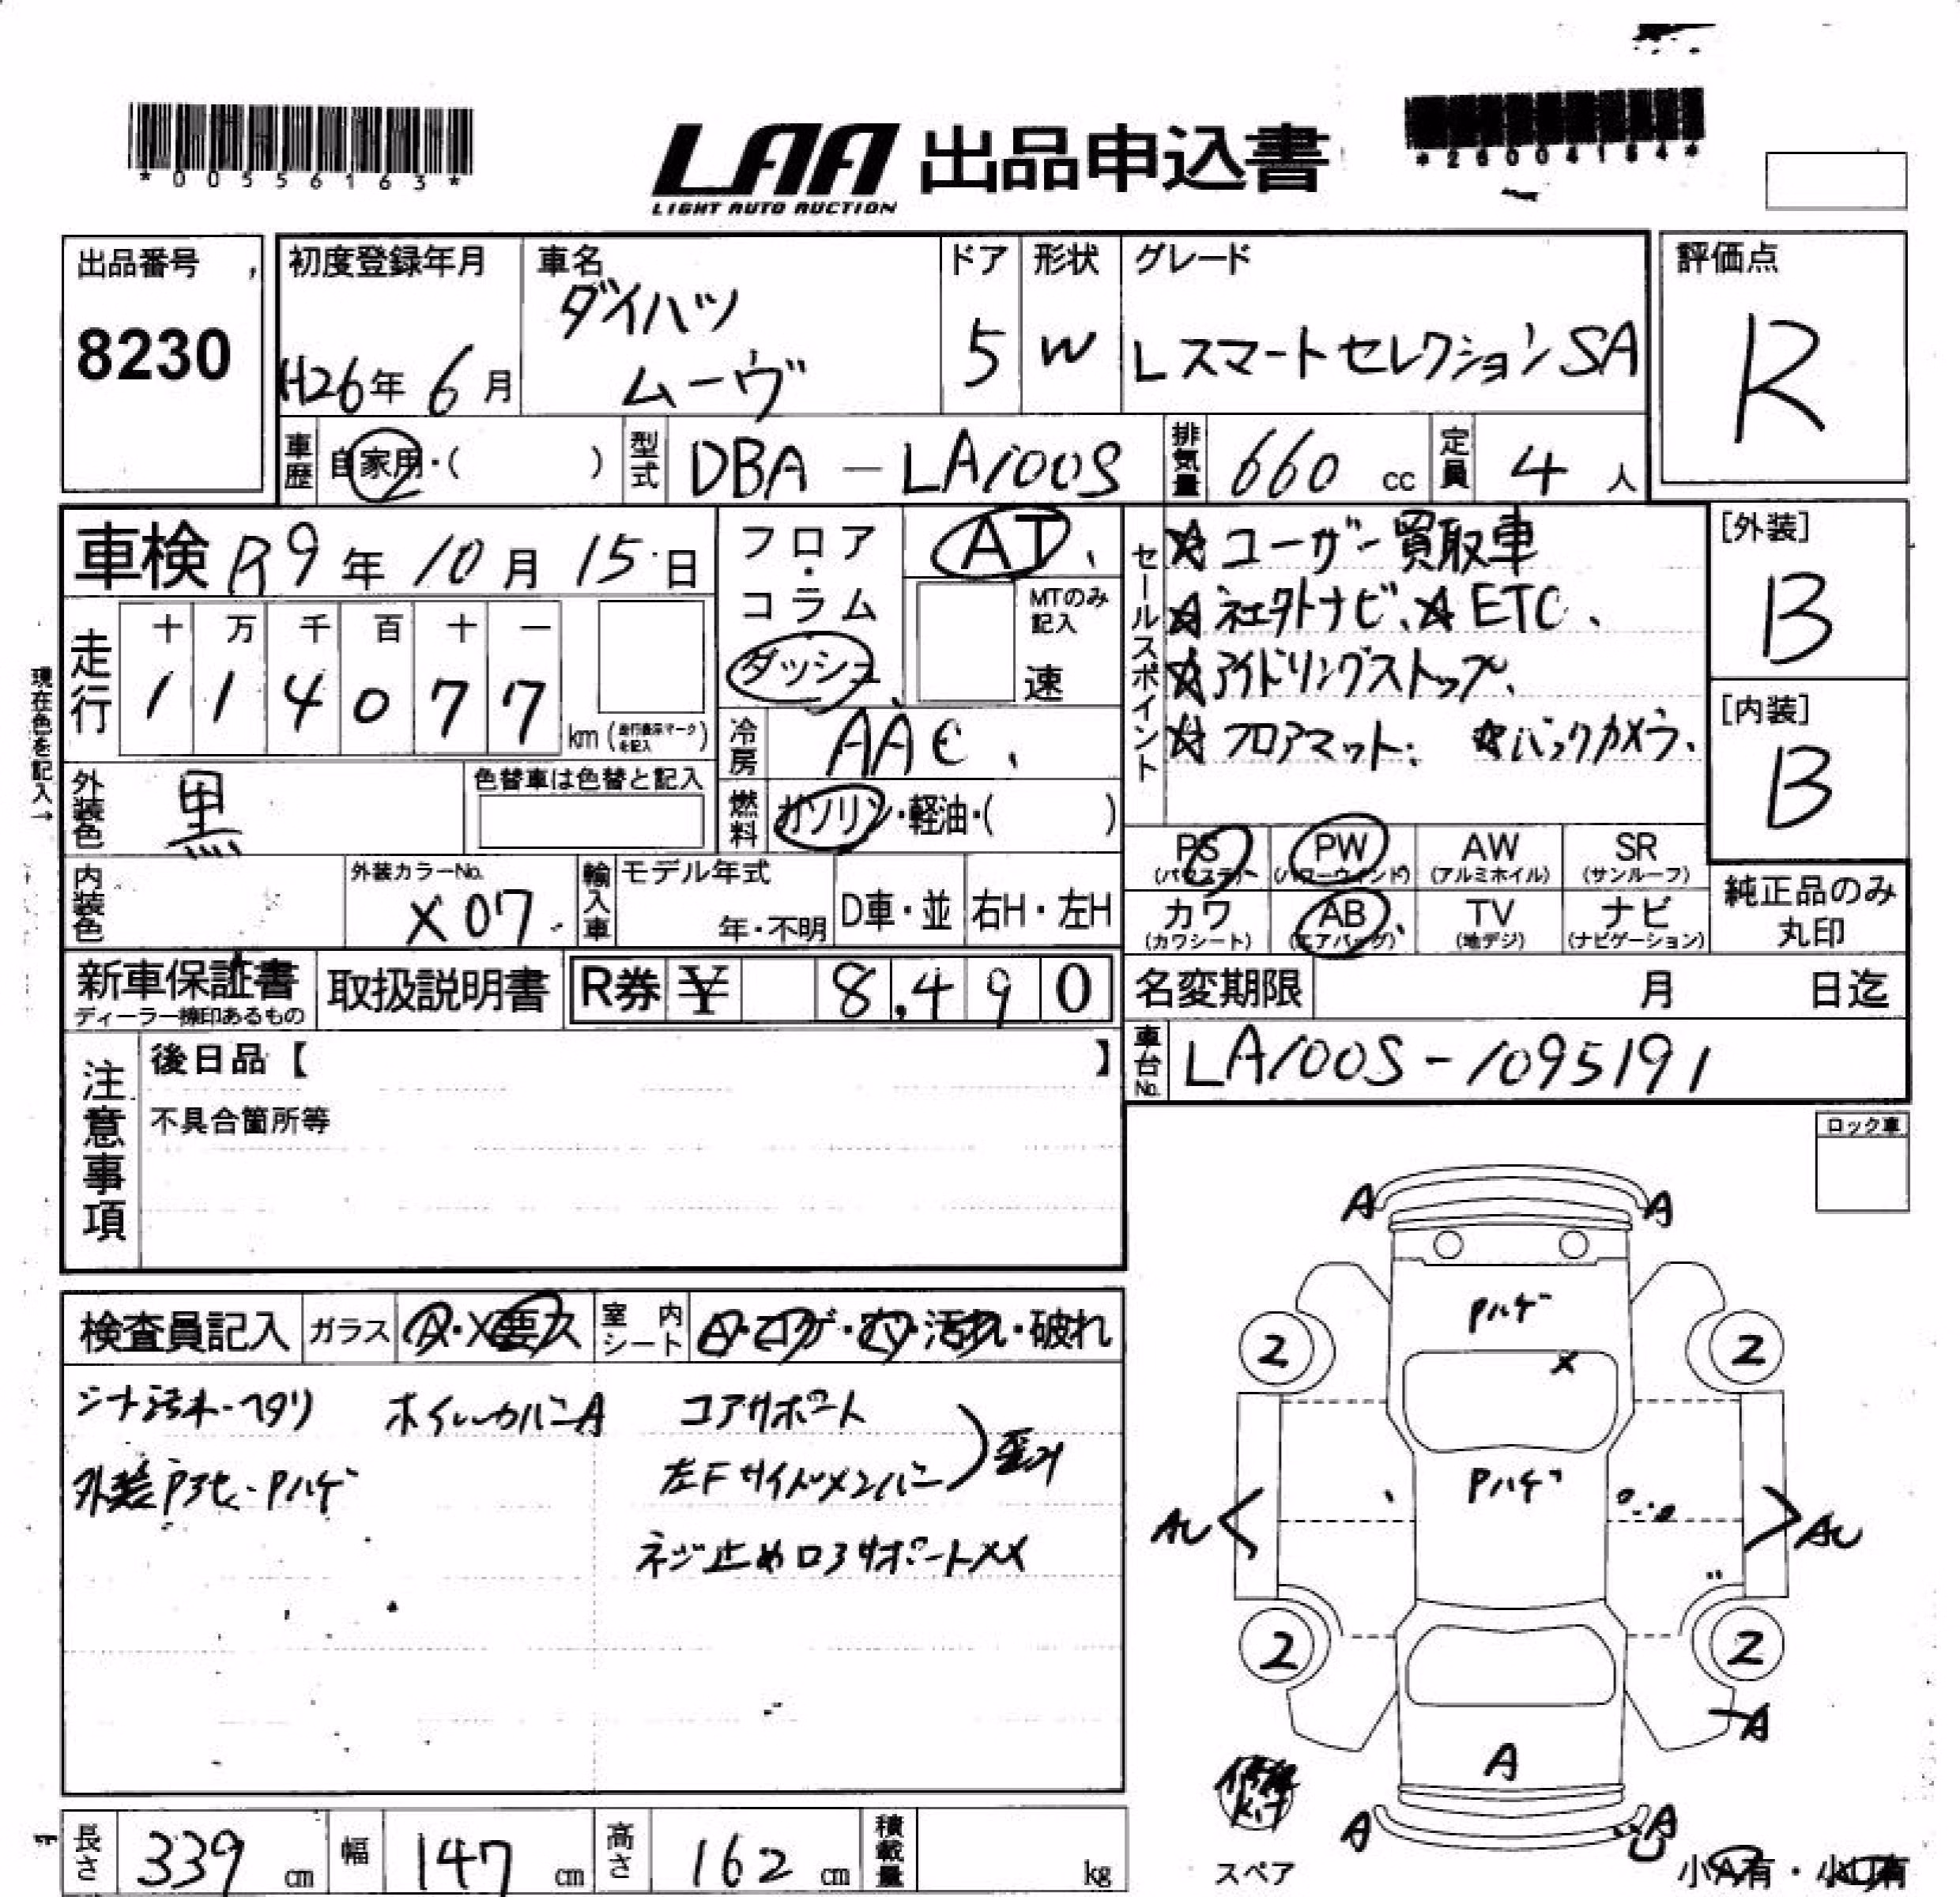 *00556163*
LAA 出品申込書
LIGHT AUTO AUCTION
*26004184*
出品番号
8230
初度登録年月
H26年 6月
車名
ダイハツ
ムーヴ
ドア
5
形状
W
グレード
Lスマートセレクション SA
評価点
R
車歴 自家用・( )
型式 DBA - LA100S
排気量 660 cc
定員 4 人
車検 R9年 10月 15日
走行
十 万 千 百 十 一
1 1 4 0 7 7
km (走行表示マークを記入)
現在色を記入→
フロア・コラム
ダッシュ
AT
MTのみ記入
速
冷房 AAC
燃料 ガソリン・軽油・( )
セールスポイント
☆ユーザー買取車
☆社外ナビ、☆ETC、
☆アイドリングストップ、
☆フロアマット、 ☆バックカメラ、
[外装]
B
[内装]
B
外装色 黒
色替車は色替と記入
内装色
外装カラーNo.
X07
輸入車
モデル年式
年・不明
D車・並
右H・左H
PS (パワステ)
PW (パワーウィンド)
AW (アルミホイル)
SR (サンルーフ)
カワ (カワシート)
AB (エアバッグ)
TV (地デジ)
ナビ (ナビゲーション)
純正品のみ
丸印
新車保証書
ディーラー捺印あるもの
取扱説明書
R券 ¥ 8,490
名変期限 月 日迄
車台No. LA100S-1095191
注意事項
後日品【 】
不具合箇所等
ロック車
検査員記入
ガラス A・X要ス
室内シート A・コゲ・穴・汚れ・破れ
シート汚れ・ヘタリ ホイルカバーA コアサポート
外装アセ・Pハゲ 左Fサイドメンバー)歪み
ネジ止めロアサポートXX
A A
Pハゲ
2 X 2
Pハゲ
AU AU
2 2
A
A
A A
スペア
小A有・小U有
長さ 339 cm
幅 147 cm
高さ 162 cm
積載量 kg